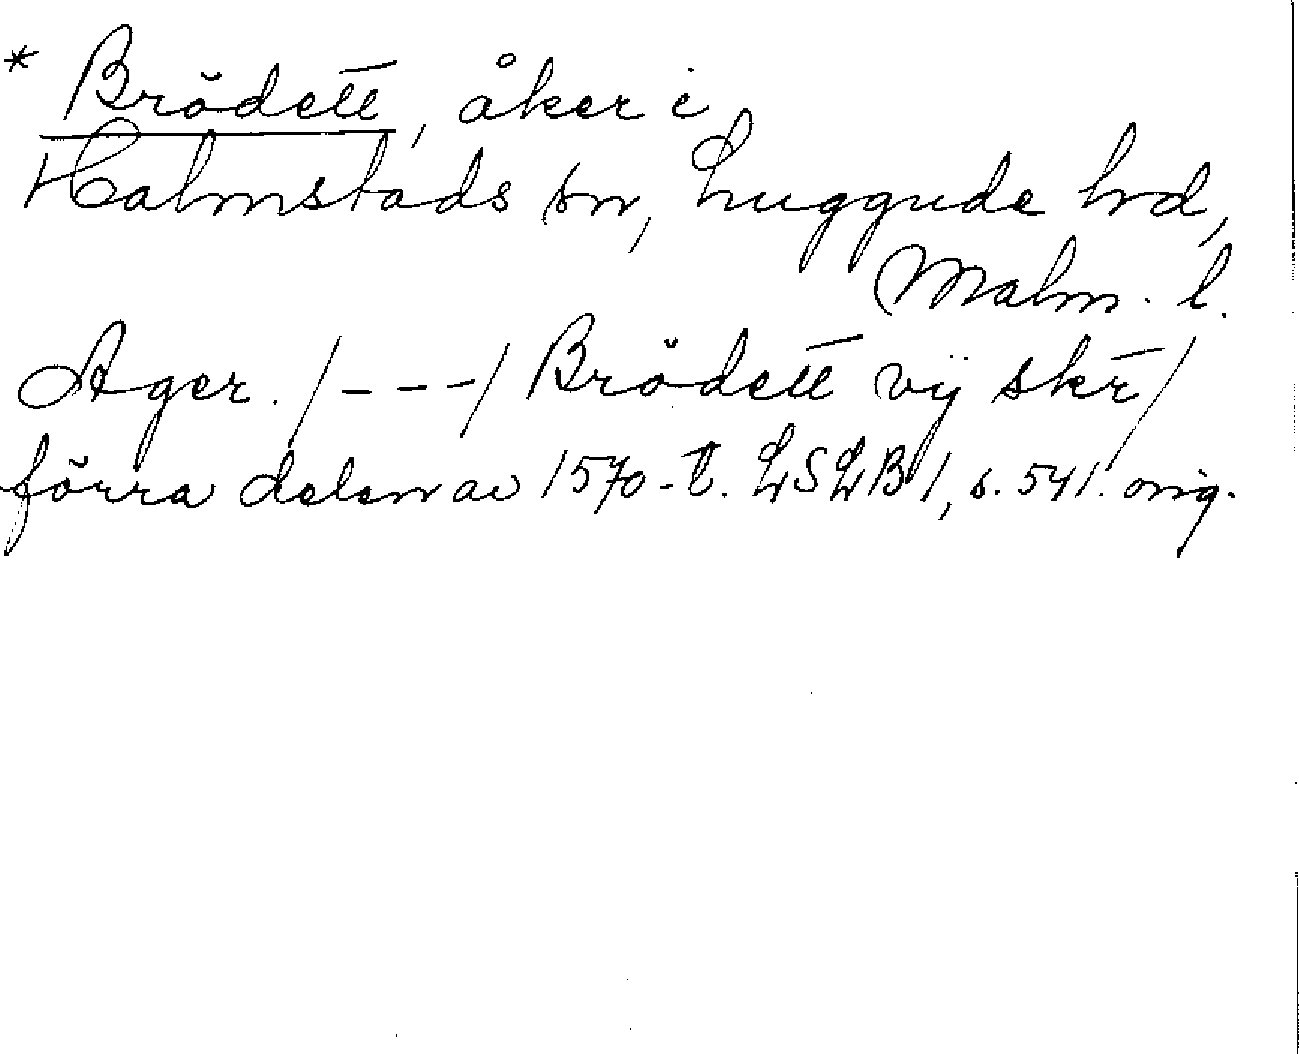 * Brödett, åker i
Halmstads sn, Luggude hd,
Malm. l.
Ager. /---/ Brödett vij skr̄/
förra delen av 1570-t. LSLB 1, s. 541. orig.